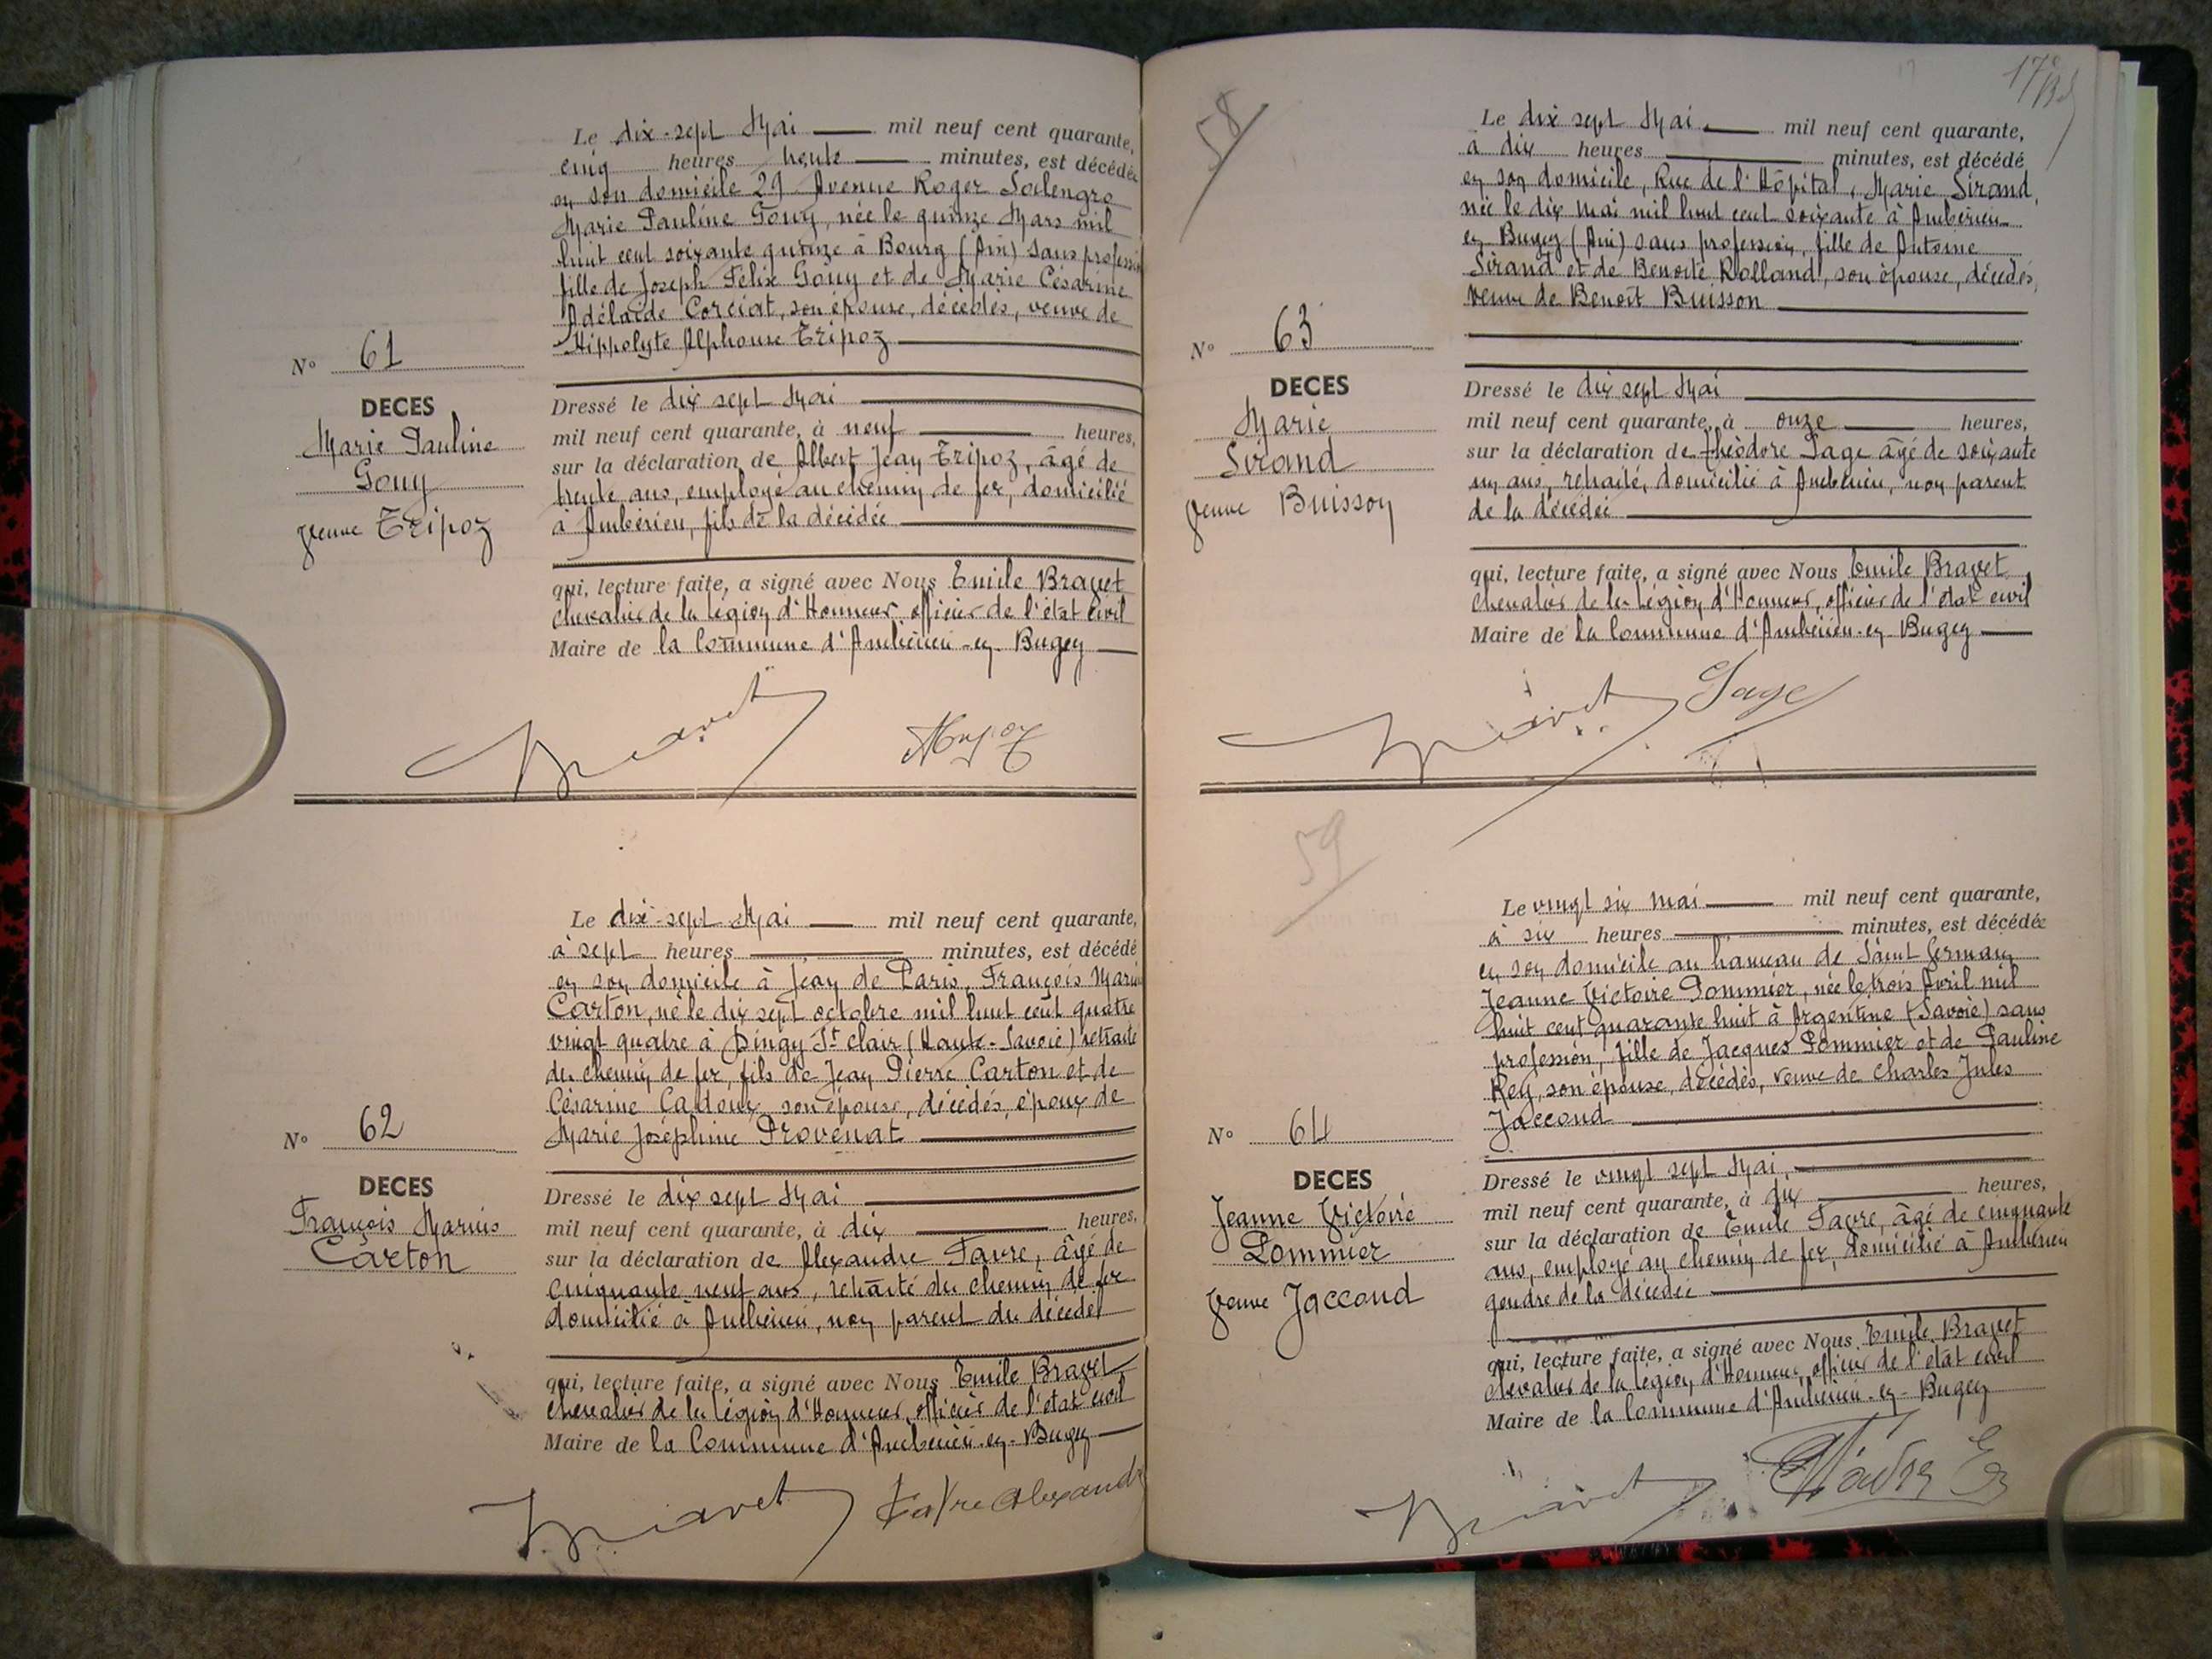 Le dix-sept Mai mil neuf cent quarante,
cinq heures trente minutes, est décédée
en son domicile 29 Avenue Roger Salengro
Marie Pauline Gouy, née le quinze Mars mil
huit cent soixante quinze à Bourg (Ain) sans profession
fille de Joseph Félix Gouy et de Marie Césarine
Adélaïde Corciat, son épouse, décédés, veuve de
Hippolyte Alphonse Tripoz
N° 61
DECES
Marie Pauline
Gouy
Veuve Tripoz
Dressé le dix sept Mai
mil neuf cent quarante, à neuf heures,
sur la déclaration de Albert Jean Tripoz, âgé de
trente ans, employé au chemin de fer, domicilié
à Ambérieu, fils de la décédée
qui, lecture faite, a signé avec Nous Emile Bravet
chevalier de la Légion d'Honneur officier de l'état civil
Maire de la Commune d'Ambérieu-en-Bugey
Bravet
ATripoz
Le dix-sept Mai mil neuf cent quarante,
à sept heures minutes, est décédé
en son domicile à Jean de Paris, François Marius
Carton, né le dix sept octobre mil huit cent quatre
vingt quatre à Dingy St clair (Haute-Savoie) retraité
du chemin de fer, fils de Jean Pierre Carton et de
Césarine Cadoux son épouse, décédés, époux de
Marie Joséphine Provenat
N° 62
DECES
François Marius
Carton
Dressé le dix sept Mai
mil neuf cent quarante, à dix heures,
sur la déclaration de Alexandre Favre, âgé de
cinquante neuf ans, retraité du chemin de fer
domicilié à Ambérieu, non parent du décédé
qui, lecture faite, a signé avec Nous Emile Bravet
chevalier de la Légion d'Honneur, officier de l'état civil
Maire de la Commune d'Ambérieu-en-Bugey
Bravet
Favre Alexandre
17e
58
Le dix sept Mai mil neuf cent quarante,
à dix heures minutes, est décédé
en son domicile, Rue de l'Hôpital, Marie Sirand,
née le dix mai mil huit cent soixante à Ambérieu
en Bugey (Ain) sans profession, fille de Antoine
Sirand et de Benoîte Rolland, son épouse, décédés,
veuve de Benoît Buisson
N° 63
DECES
Marie
Sirand
Veuve Buisson
Dressé le dix sept Mai
mil neuf cent quarante, à onze heures,
sur la déclaration de théodore Sage âgé de soixante
un ans, retraité, domicilié à Ambérieu, non parent
de la décédée
qui, lecture faite, a signé avec Nous Emile Bravet
chevalier de la Légion d'honneur, officier de l'état civil
Maire de la Commune d'Ambérieu-en Bugey
Bravet
Sage
59
Le vingt six mai mil neuf cent quarante,
à six heures minutes, est décédée
en son domicile au hameau de Saint Germain
Jeanne Victoire Pommier, née le trois Avril mil
huit cent quarante huit à Argentine (Savoie) sans
profession, fille de Jacques Pommier et de Pauline
Rey, son épouse, décédés, veuve de Charles Jules
Jaccond
N° 64
DECES
Jeanne Victoire
Pommier
Veuve Jaccond
Dressé le vingt sept Mai
mil neuf cent quarante, à dix heures,
sur la déclaration de Emile Favre, âgé de cinquante
ans, employé au chemin de fer, domicilié à Ambérieu
gendre de la décédée
qui, lecture faite, a signé avec Nous Emile Bravet
chevalier de la Légion d'Honneur officier de l'état civil
Maire de la Commune d'Ambérieu-en-Bugey
Bravet
Favre E